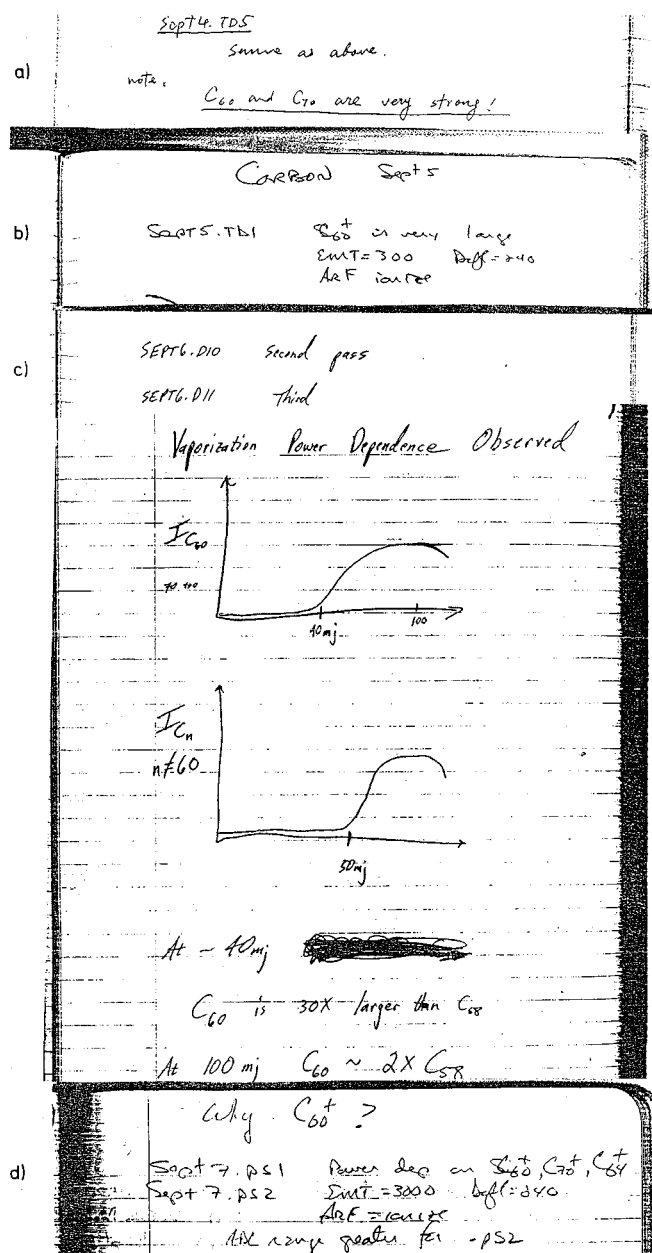 a)
Sept 4. TD5
Same as above.
note.
C60 and C70 are very strong!
b)
CARBON Sept 5
SEPT 5. TD1 C60+ is very large
EMT=300 Defl=240
ArF ionize
c)
SEPT6.D10 Second pass
SEPT6.D11 Third
Vaporization Power Dependence Observed
I C60
40mj 100
I Cn
n≠60
50mj
At ~ 40mj
C60 is 30X larger than C58
At 100 mj C60 ~ 2X C58
d)
Why C60+ ?
Sept 7. PS1 Power dep on C60+, C70+, C64+
Sept 7. PS2 EMT=3000 Defl=240
ArF = ionize
range greater for .PS2